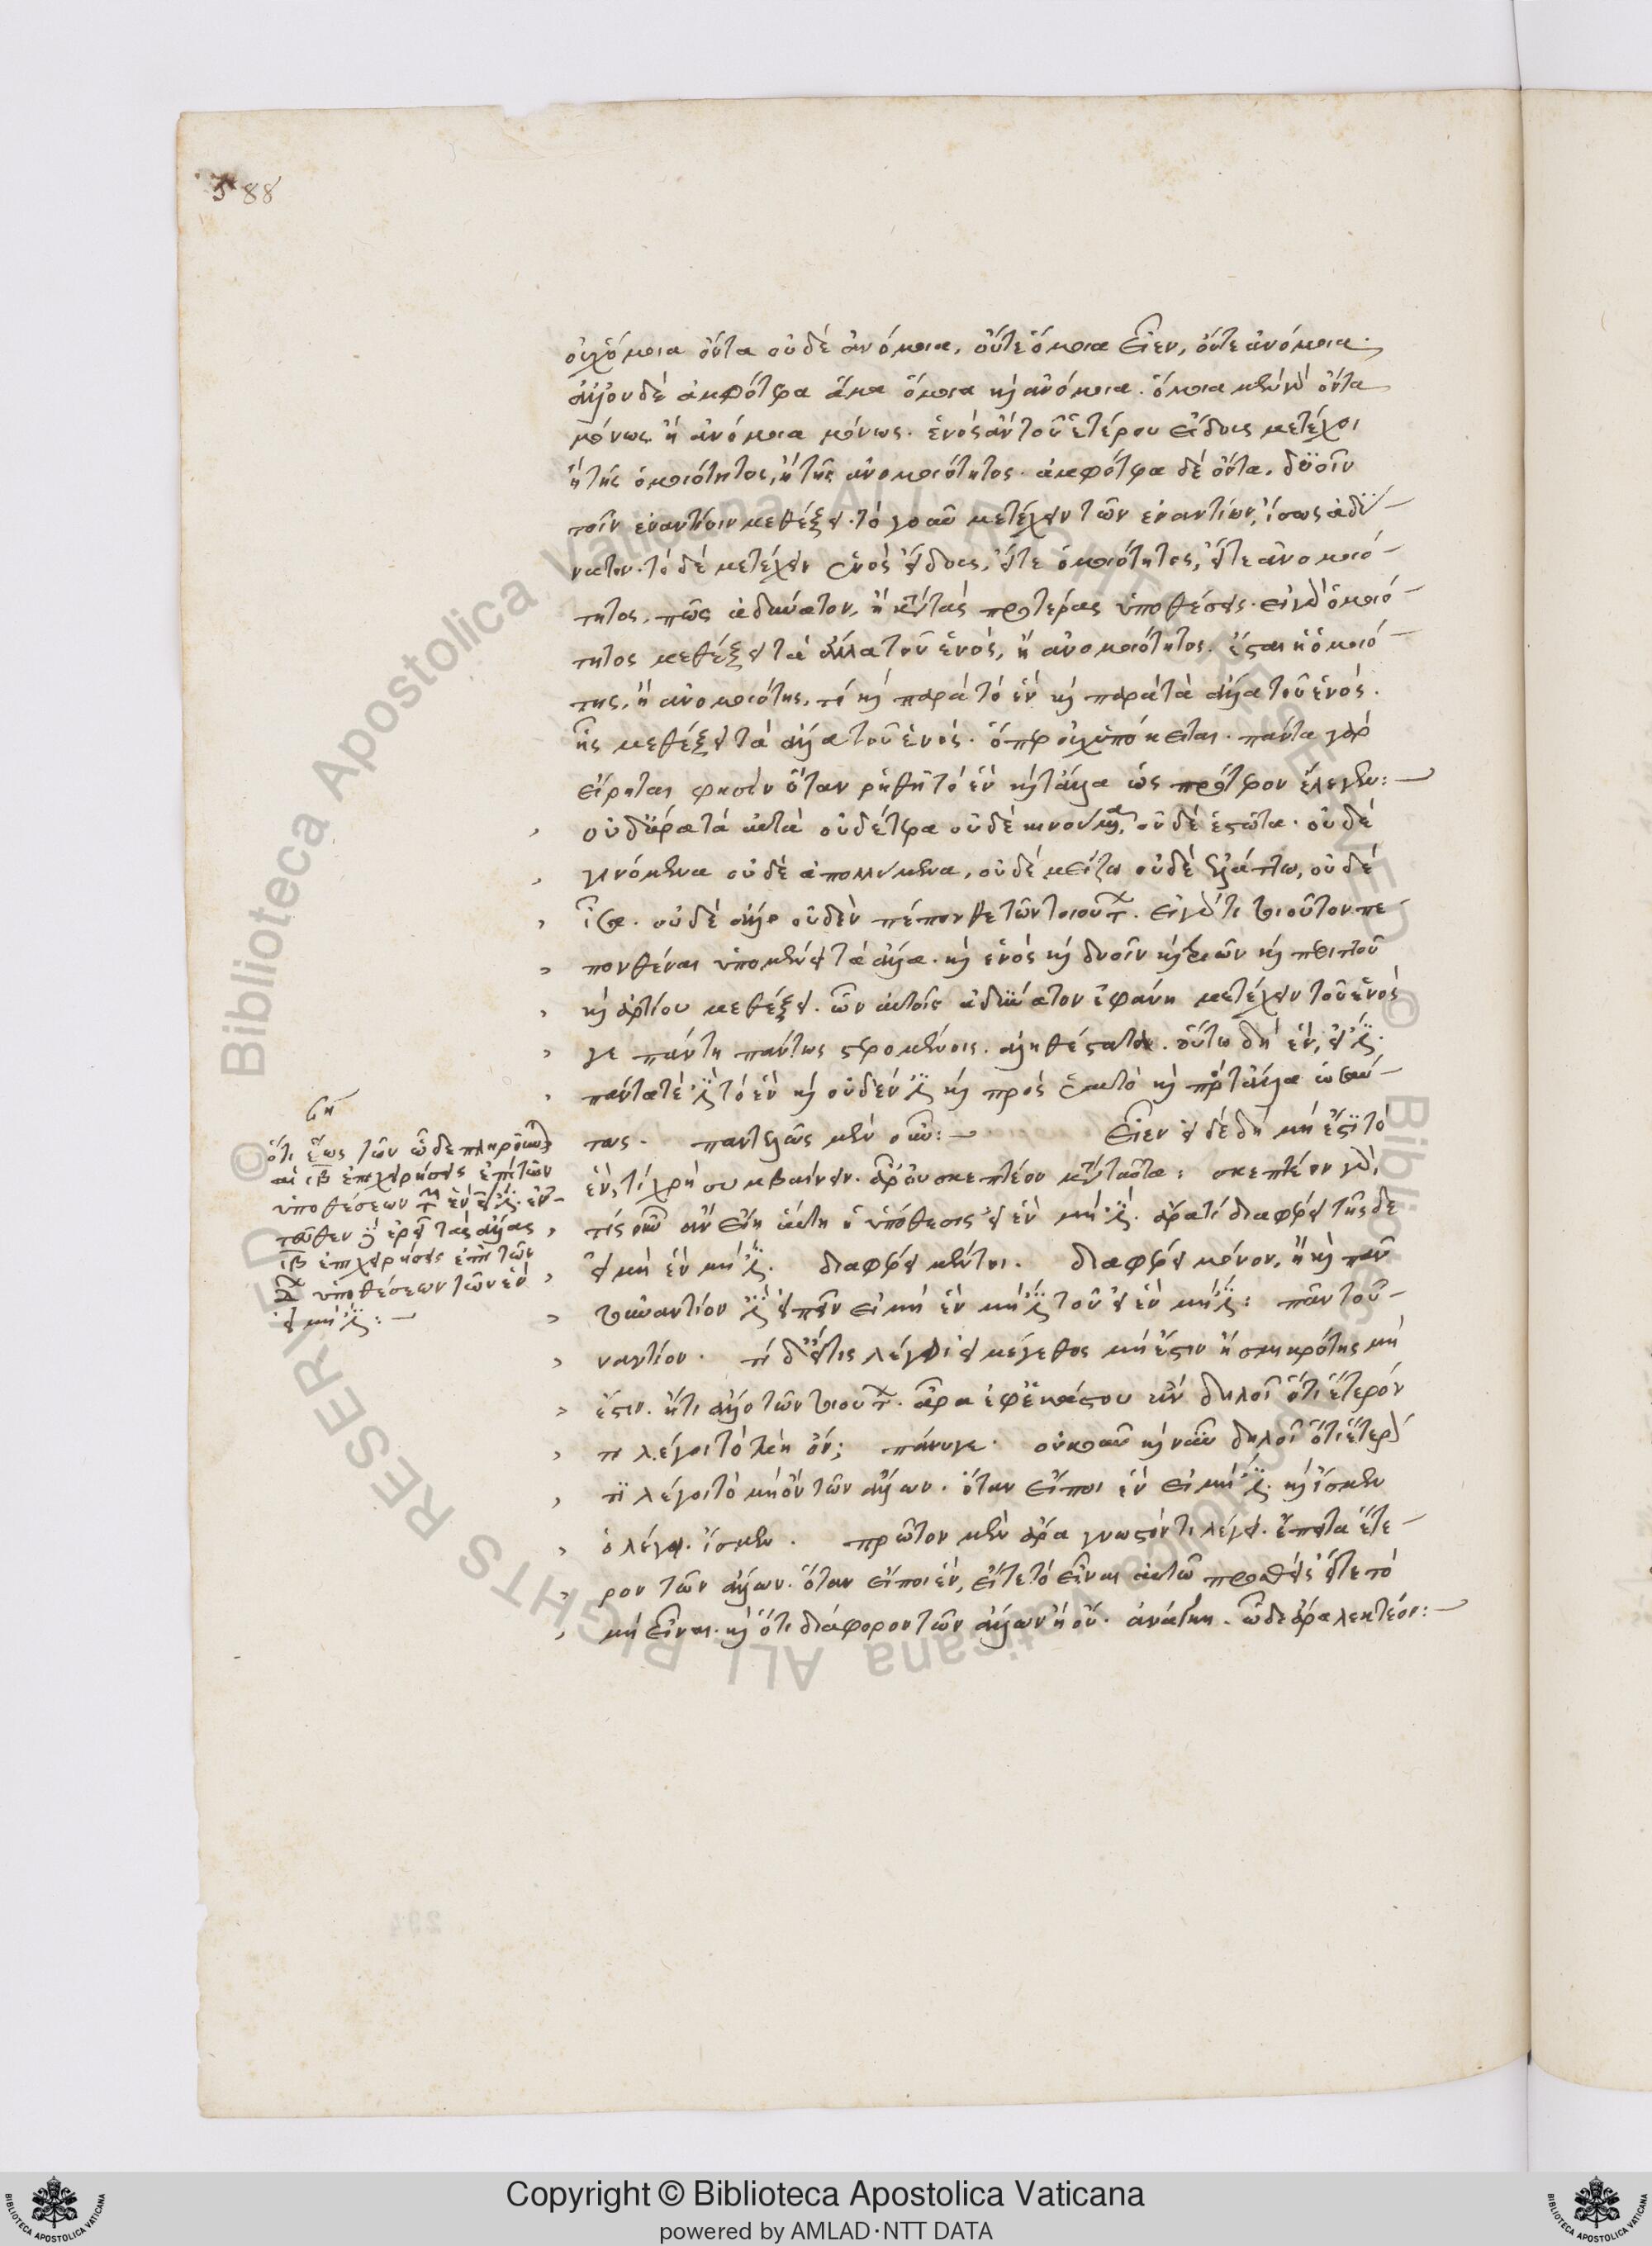 588
οὐχ ὅμοια ὄντα οὐδὲ ἀνόμοια, οὔτε ὅμοια εἶεν, οὔτε ἀνόμοια.
ἀλλ' οὐδὲ ἀμφότερα ἅμα ὅμοια καὶ ἀνόμοια. ὅμοια μὲν γὰρ ὄντα
μόνως ἢ ἀνόμοια μόνως. ἑνὸς ἂν τοῦ ἑτέρου εἴδους μετέχοι
ἢ τῆς ὁμοιότητος, ἢ τῆς ἀνομοιότητος. ἀμφότερα δὲ ὄντα, δυοῖν
τοῖν ἐναντίοιν μεθέξει. τὸ γὰρ αὖ μετέχειν τῶν ἐναντίων, ἴσως ἀδύ-
νατον. τὸ δὲ μετέχειν ἑνὸς εἴδους, εἴτε ὁμοιότητος, εἴτε ἀνομοιό-
τητος, πῶς ἀδύνατον, ἢ κατὰ τὰς προτέρας ὑποθέσεις. εἰ γὰρ ὁμοιό-
τητος μεθέξει τὰ ἄλλα τοῦ ἑνός, ἢ ἀνομοιότητος. ἔσται ἡ ὁμοιό-
της, ἢ ἀνομοιότης, τὶ καὶ παρὰ τὸ ἓν καὶ παρὰ τὰ ἄλλα τοῦ ἑνός.
ἧς μεθέξει τὰ ἄλλα τοῦ ἑνός. ὅπερ οὐχ ὑπόκειται. πάντα γὰρ
εἴρηται φησὶν ὅταν ῥηθῇ τὸ ἓν καὶ τἆλλα ὡς πρότερον ἔλεγεν:
οὐδ' ἄρα τὰ αὐτὰ οὐδ' ἕτερα οὐδὲ κινούμενα, οὐδὲ ἑστῶτα. οὐδὲ
γινόμενα οὐδὲ ἀπολλύμενα, οὐδὲ μείζω οὐδὲ ἐλάττω, οὐδὲ
ἴσα. οὐδὲ ἄλλο οὐδὲν πέπονθε τῶν τοιούτων. εἰ γάρ τι τοιοῦτον πε
πονθέναι ὑπομένει τὰ ἄλλα. καὶ ἑνὸς καὶ δυοῖν καὶ τριῶν καὶ περιττοῦ
καὶ ἀρτίου μεθέξει. ὧν αὐτοῖς ἀδύνατον ἐφάνη μετέχειν τοῦ ἑνός
γε πάντη πάντως στερομένοις. ἀληθέστατα. οὕτω δὴ ἓν, εἰ ἔστι.
πάντα τέ ἐστι τὸ ἓν καὶ οὐδέν ἐστι καὶ πρὸς ἑαυτὸ καὶ πρὸς τἆλλα ὡσαύ-
τως. παντελῶς μὲν οὖν: εἶεν εἰ δὲ δὴ μὴ ἔστι τὸ
ἓν, τί χρὴ συμβαίνειν. ἆρ' οὐ σκεπτέον μετὰ ταῦτα: σκεπτέον γάρ.
τίς οὖν ἂν εἴη αὕτη ἡ ὑπόθεσις εἰ ἓν μὴ ἔστι. ἆρά τι διαφέρει τῆσδε
εἰ μὴ ἓν μὴ ἔστι. διαφέρει μέντοι. διαφέρει μόνον, ἢ καὶ πᾶν
τοὐναντίον ἐστὶ εἰπεῖν εἰ μὴ ἓν μὴ ἔστι τοῦ εἰ ἓν μὴ ἔστι: πᾶν τοὐ-
ναντίον. τί δ' εἴ τις λέγοι εἰ μέγεθος μὴ ἔστιν ἢ σμικρότης μὴ
ἔστιν. ἤ τι ἄλλο τῶν τοιούτων. ἆρα ἐφ' ἑκάστου ἂν δηλοῖ ὅτι ἕτερόν
τι λέγοι τὸ μὴ ὄν; πάνυγε. οὐκοῦν καὶ νῦν δηλοῖ ὅτι ἕτερόν
τι λέγοι τὸ μὴ ὂν τῶν ἄλλων. ὅταν εἴποι ἓν εἰ μὴ ἔστι. καὶ ἴσμεν
ὃ λέγει. ἴσμεν. πρῶτον μὲν ἄρα γνωστόν τι λέγει. ἔπειτα ἕτε-
ρον τῶν ἄλλων. ὅταν εἴποι ἓν, εἴτε τὸ εἶναι αὐτῷ προσθεὶς εἴτε τὸ
μὴ εἶναι. καὶ ὅτι διάφορον τῶν ἄλλων ἢ οὔ. ἀνάγκη. ὧδε ἄρα λεκτέον:
ση
ὅτι ἕως τῶν ὧδε πληροῦνται
αἱ ιβ ἐπιχειρήσεις ἐπὶ τῶν
ὑποθέσεων τοῦ ἓν εἰ ἔστι. ἐν-
τεῦθεν
τὰς ἄλλας
ιβ ἐπιχειρήσεις ἐπὶ τῶν
ὑποθέσεων τῶν ἓν
εἰ μὴ ἔστι: